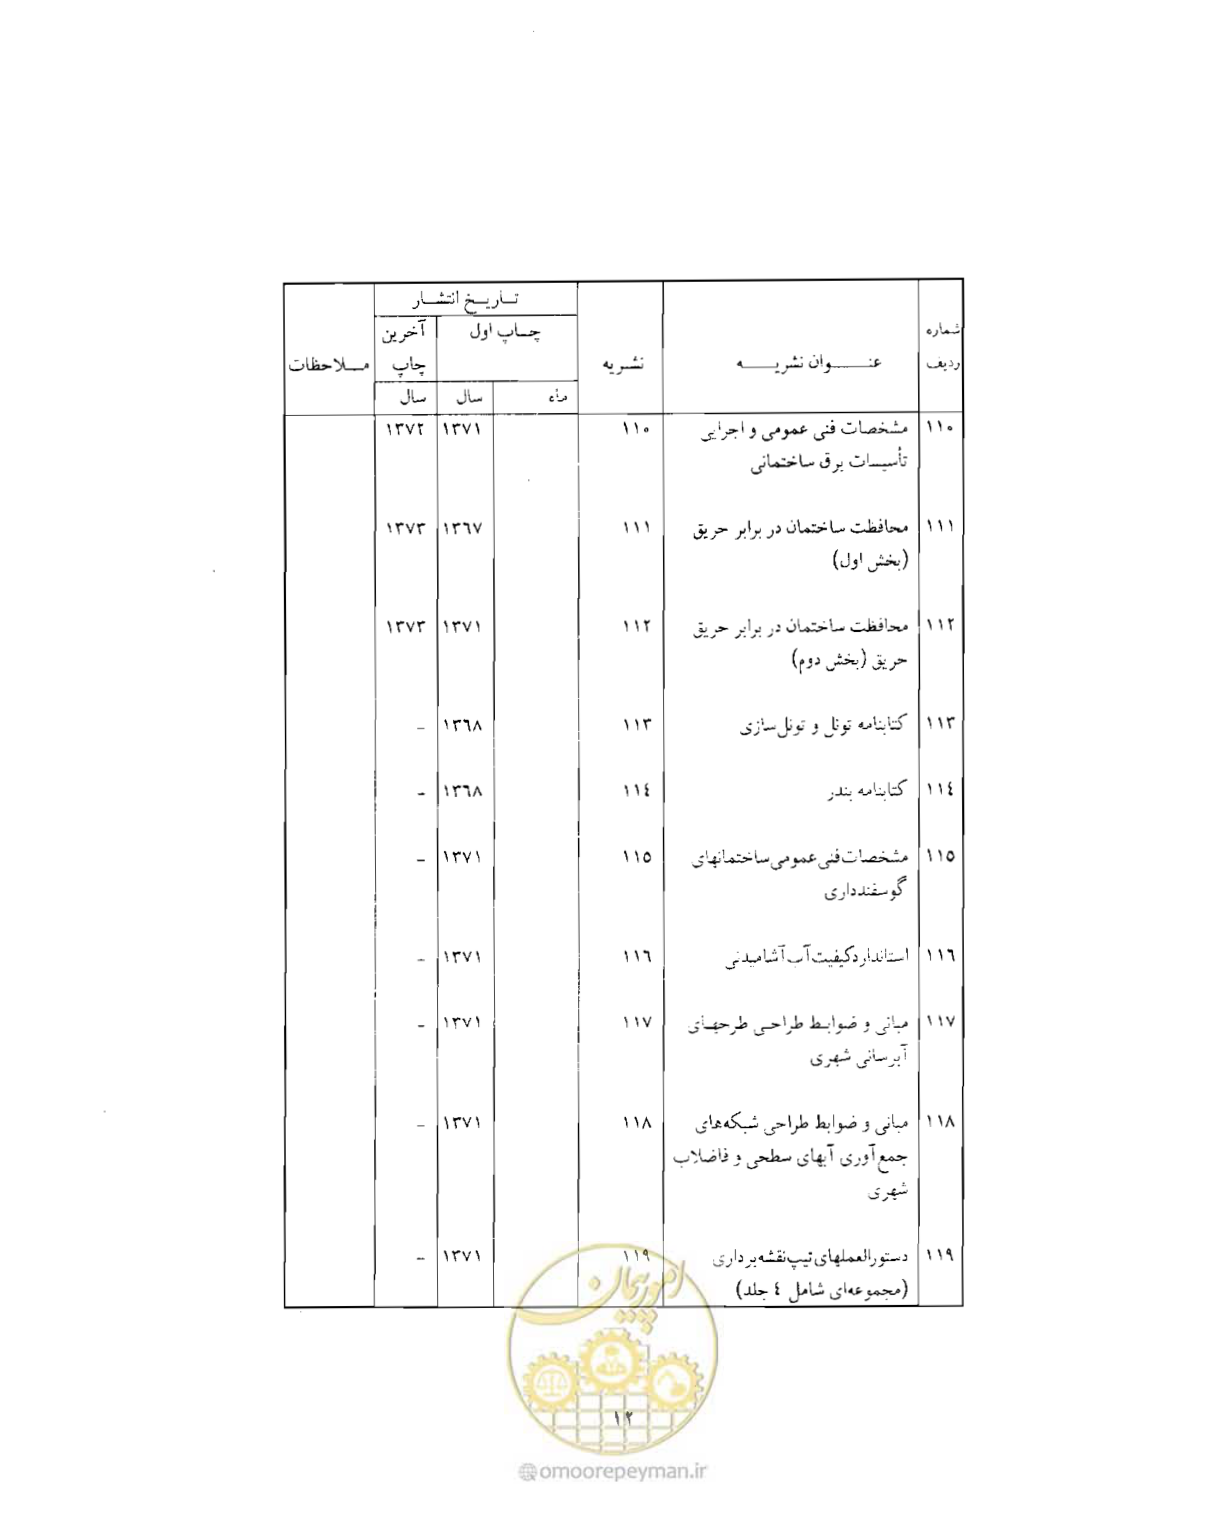 تـاریـخ انتشـار
شماره
چـاپ اول
آخرین
ردیف
عنـــوان نشریـــه
نشـریه
چاپ
مـلاحظات
ماه
سال
سال
۱۱۰ مشخصات فنی عمومی و اجرایی ۱۱۰ ۱۳۷۱ ۱۳۷۲
تأسیسات برق ساختمانی
۱۱۱ محافظت ساختمان در برابر حریق ۱۱۱ ۱۳٦۷ ۱۳۷۳
(بخش اول)
۱۱۲ محافظت ساختمان در برابر حریق ۱۱۲ ۱۳۷۱ ۱۳۷۳
حریق (بخش دوم)
۱۱۳ کتابنامه تونل و تونل‌سازی ۱۱۳ ۱۳٦۸ -
۱۱٤ کتابنامه بندر ۱۱٤ ۱۳٦۸ -
۱۱٥ مشخصات فنی عمومی ساختمانهای ۱۱٥ ۱۳۷۱ -
گوسفندداری
۱۱٦ استاندارد کیفیت آب آشامیدنی ۱۱٦ ۱۳۷۱ -
۱۱۷ مبانی و ضوابط طراحی طرحهای ۱۱۷ ۱۳۷۱ -
آبرسانی شهری
۱۱۸ مبانی و ضوابط طراحی شبکه‌های ۱۱۸ ۱۳۷۱ -
جمع‌آوری آبهای سطحی و فاضلاب
شهری
۱۱۹ دستورالعملهای تیپ نقشه‌برداری ۱۱۹ ۱۳۷۱ -
(مجموعه‌ای شامل ٤ جلد)
امور پیمان
۱۲
omoorepeyman.ir